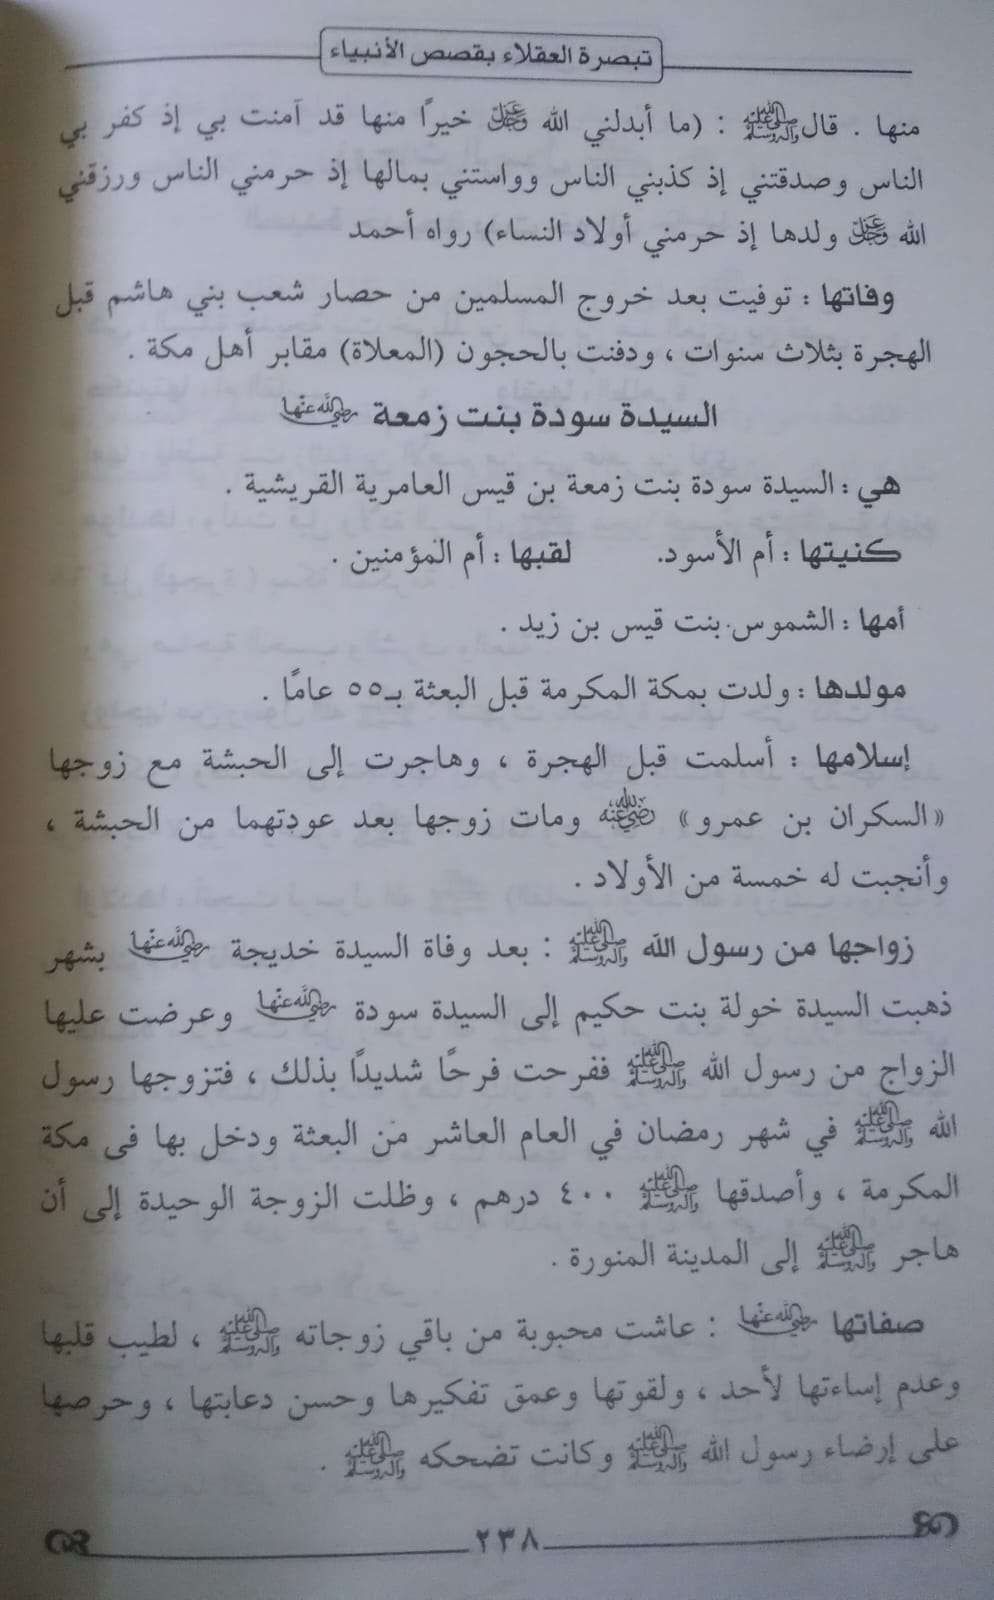 تبصرة العقلاء بقصص الأنبياء
منها . قال ﷺ : (ما أبدلني الله عز وجل خيراً منها قد آمنت بي إذ كفر بي
الناس وصدقتني إذ كذبني الناس وواستني بمالها إذ حرمني الناس ورزقني
الله عز وجل ولدها إذ حرمني أولاد النساء) رواه أحمد
وفاتها : توفيت بعد خروج المسلمين من حصار شعب بني هاشم قبل
الهجرة بثلاث سنوات ، ودفنت بالحجون (المعلاة) مقابر أهل مكة .
السيدة سودة بنت زمعة رضي الله عنها
هي : السيدة سودة بنت زمعة بن قيس العامرية القريشية .
كنيتها : أم الأسود. لقبها : أم المؤمنين .
أمها : الشموس بنت قيس بن زيد .
مولدها : ولدت بمكة المكرمة قبل البعثة بـ٥٥ عامًا .
إسلامها : أسلمت قبل الهجرة ، وهاجرت إلى الحبشة مع زوجها
«السكران بن عمرو» رضي الله عنه ومات زوجها بعد عودتهما من الحبشة ،
وأنجبت له خمسة من الأولاد .
زواجها من رسول الله ﷺ : بعد وفاة السيدة خديجة رضي الله عنها بشهر
ذهبت السيدة خولة بنت حكيم إلى السيدة سودة رضي الله عنها وعرضت عليها
الزواج من رسول الله ﷺ ففرحت فرحًا شديدًا بذلك ، فتزوجها رسول
الله ﷺ في شهر رمضان في العام العاشر من البعثة ودخل بها فى مكة
المكرمة ، وأصدقها ﷺ ٤٠٠ درهم ، وظلت الزوجة الوحيدة إلى أن
هاجر ﷺ إلى المدينة المنورة .
صفاتها رضي الله عنها : عاشت محبوبة من باقي زوجاته ﷺ ، لطيب قلبها
وعدم إساءتها لأحد ، ولقوتها وعمق تفكيرها وحسن دعابتها ، وحرصها
على إرضاء رسول الله ﷺ وكانت تضحكه ﷺ .
٢٣٨